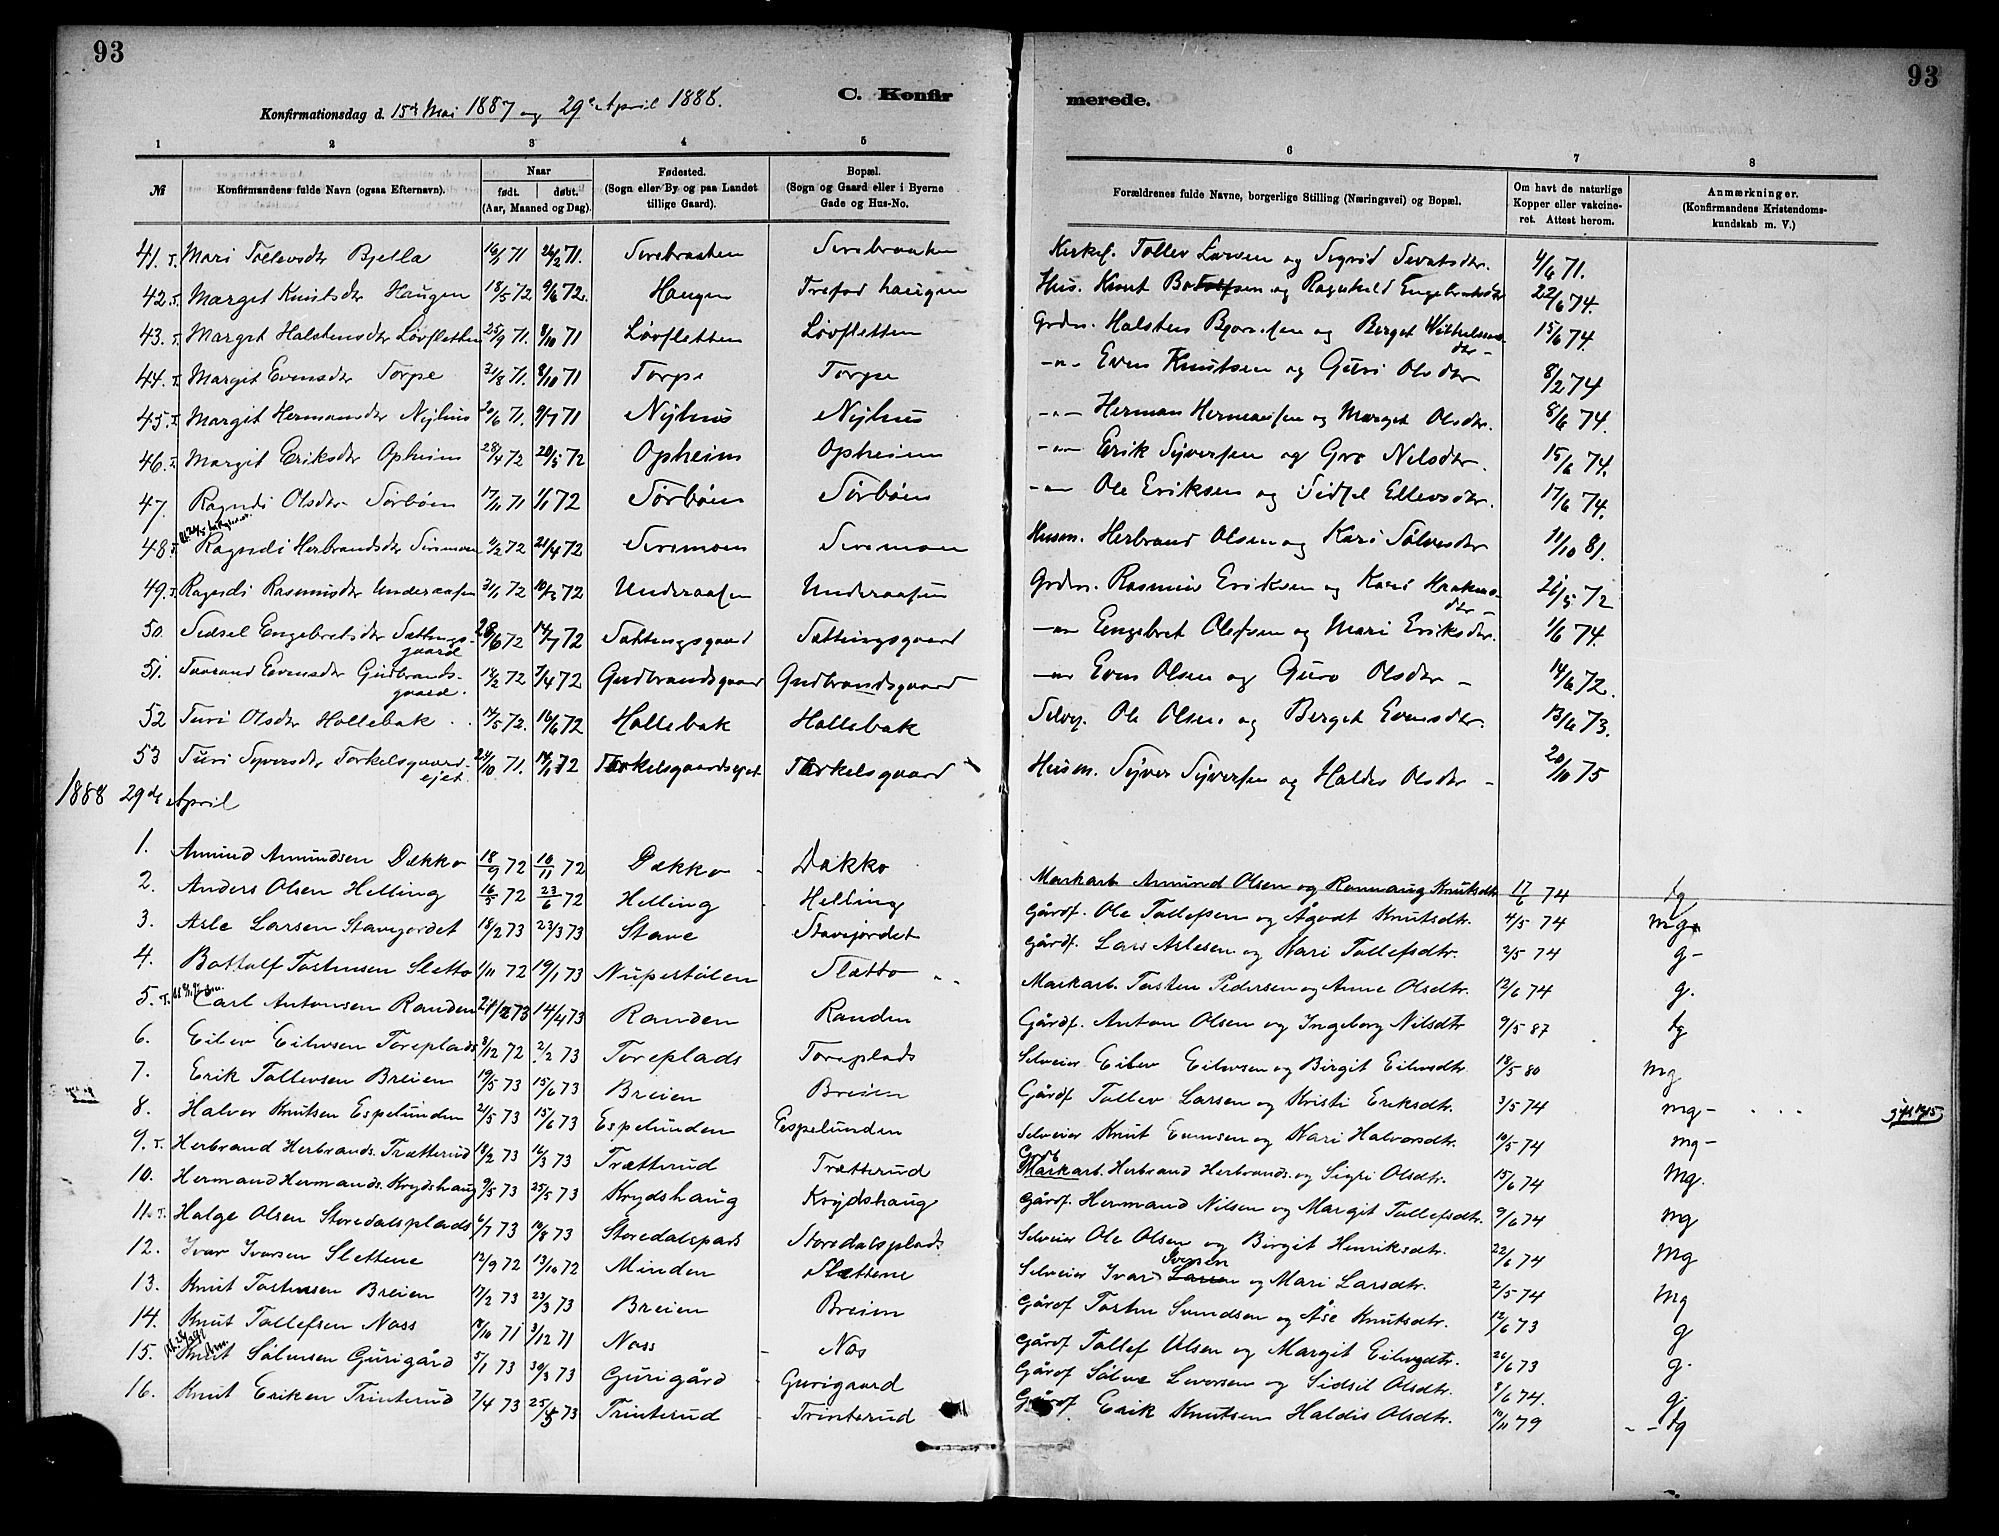 93
93
Konfirmationsdag d. 15de Mai 1887 og 29de April 1888.
C. Konfir
merede.
1 2 3 4 5 6 7 8
№ Konfirmandens fulde Navn (ogsaa Efternavn). Naar født. døbt. (Aar, Maaned og Dag). Fødested. (Sogn eller By og paa Landet tillige Gaard). Bopæl. (Sogn og Gaard eller i Byerne Gade og Hus-No. Forældrenes fulde Navne, borgerlige Stilling (Næringsvei) og Bopæl. Om havt de naturlige Kopper eller vakcineret. Attest herom. Anmærkninger. (Konfirmandens Kristendomskundskab m. V.)
41. T. Mari Tollevsdtr Bjella 16/1 71 26/2 71. Sirebraaten Sirebraaten Kirkes. Tollev Larsen og Sigrid Sivatsdtr. 4/6 71.
42. T. Margit Knutsdtr Haugen 18/5 72 9/6 72. Haugen Trefod haugen Hus. Knut Botolfsen og Ragnhild Engebretsdtr 22/6 74.
43. T. Margit Halstensdtr Løvfletten 25/9 71. 8/10 71 Løvfletten Løvfletten Grdm. Halsten Bjørnsen og Berget Wilhelmsdtr - 15/6 74.
44. T. Margit Evensdtr Torpe 31/8 71. 8/10 71 Torpe Torpe -"- Even Knutsen og Guri Olsdtr 8/2 74
45. T. Margit Hermansdtr Nyhus 20/6 71. 9/7 71 Nyhus Nyhus -"- Herman Hermansen og Margit Olsdtr. 8/6 74.
46. T. Margit Eriksdtr Opheim 28/4 72 20/5 72 Opheim Opheim -"- Erik Syversen og Gro Nilsdtr. 15/6 74.
47. Ragndi Olsdtr Sørbøen 17/11 71 1/1 72 Sørbøen Sørbøen -"- Ole Eriksen og Sidsel Ellevsdtr. 17/6 74.
48. T. Ragndi Herbrandsdtr Siremoen 1/2 72 21/4 72 Siremoen Siremoen Husm. Herbrand Olsen og Kari Solvesdtr 11/10 81.
49. T. Ragndi Rasmusdtr Underaasen 31/1 72 10/3 72 Underaasen Underaasen Grdm. Rasmus Eriksen og Kari Haakensdtr - 21/5 72
50. Sidsel Engebretsdtr Sættingsgaard 28/6 72 14/7 72 Sattingsgaard Sættingsgaard -"- Engebret Olsen og Mari Eriksdtr. 1/6 74.
51. Taarand Evensdtr Gudbrandsgaard. 14/2 72 7/4 72 Gudbrandsgaard Gudbrandsgaard -"- Even Olsen og Guro Olsdtr - 14/6 72.
52 Turi Olsdtr Hollebak 14/5 72. 16/6 72 Hollebak Hollebak Selvej. Ole Olsen og Berget Evensdtr. 13/6 73.
53 Turi Syversdtr Torkelsgaardejet. 24/10 71. 14/1 72 Torkelsgaardsejet Torkelsgaard Husm. Syver Syversen og Haldis Olsdtr - 20/10 75
1888 29de April
1. Amund Amundsen Dækko 18/9 72 10/11 72 Dækko Dakko Markarb Amund Olsen og Rannaug Knutsdtr 17/6 74 tg
2. Anders Olsen Helling 16/5 72 23/6 72 Helling Helling Gårdf. Ole Tollefsen og Ågodt Knutsdtr. 4/5 74 mg
3. Asle Larsen Stavejordet 18/2 73 23/3 73 Stave Stavejordet Gårdf. Lars Aslesen og Kari Tollefsdtr. 2/5 74 g-
4. Bottolf Tostensen Sletto 1/11 72 19/1 73 Nupestølen Slætto Markarb Tosten Pedersen og Anne Olsdtr. 12/6 74 g.
5. T. Carl Antonsen Randen 21/2 73 14/4 73 Randen Randen Gårdf. Anton Olsen og Ingeborg Nilsdtr 9/5 87 tg
6. Eilev Eilevsen Toreplads 8/12 72 2/2 73 Toreplads Toreplads Selveier Eilev Eilevsen og Birgit Eilevsdtr 18/5 80 mg
7. Erik Tollevsen Breien 19/5 73 15/6 73 Breien Breien Gårdf Tollev Larsen og Kristi Eriksdtr. 3/5 74 mg-
8. Halvor Knutsen Espelunden 21/5 73 15/6 73 Espelunden Espelunden Selveier Knut Evensen og Kari Halvorsdtr. 10/5 74 mg-
9. T. Herbrand Herbrands. Trætterud 18/2 73 16/3 73 Trætterud Trætterud Markarb. Herbrand Herbrands. og Sigri Olsdtr. 15/6 74 Mg.
10. Hermand Hermands. Krydshaug 9/5 73 25/5 73 Krydshaug Krydshaug Gårdf. Hermand Nilsen og Margit Tollefsdtr. 9/6 74 mg
11. T. Halge Olsen Storedalsplads 6/7 73 10/8 73 Storedalspads Storedalsplads Selveier Ole Olsen og Birgit Henriksdtr. 22/6 74 Mg
12. Ivar Ivarsen Slettene 12/9 72 13/10 72 Minden Slettene Selveier Ivar Iversen Larsen og Mari Larsdtr. 2/5 74 Mg
13. Knut Tostensen Breien 17/2 73 23/3 73 Breien Breien Gårdf Tosten Svendsen og Åse Knutsdtr. 12/6 73 g
14. Knut Tollefsen Nass 18/10 71 3/12 71 Nass Nas Gårdf Tollef Olsen og Margit Eilevsdtr. 26/6 73 g.
15. Knut Sølvesen Gurigård 5/1 73 30/3 73 Gurigård Gurigaard Gårdf Sølve Leversen og Sidsil Olsdtr. 8/6 74. g.
16. Knut Eriksen Trinterud 7/4 73 25/5 73 Trinterud Trinterud Gårdf Erik Knutsen Haldis Olsdtr. 10/11 79 tg